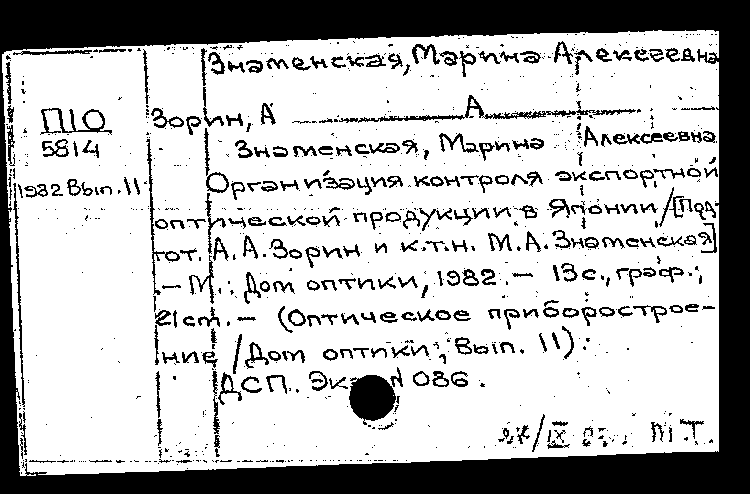 Знаменская, Марина Алексеевна
П10
5814
1982 Вып. 11
Зорин, А А
Знаменская, Марина Алексеевна
Организация контроля экспортной
оптической продукции в Японии / [Под-
гот. А. А. Зорин и к.т.н. М. А. Знаменская]
. – М. : Дом оптики, 1982. – 13 с., граф.;
21 cm. – (Оптическое приборострое-
ние / Дом оптики; Вып. 11).
ДСП. Экз. N 086.
М.Т.